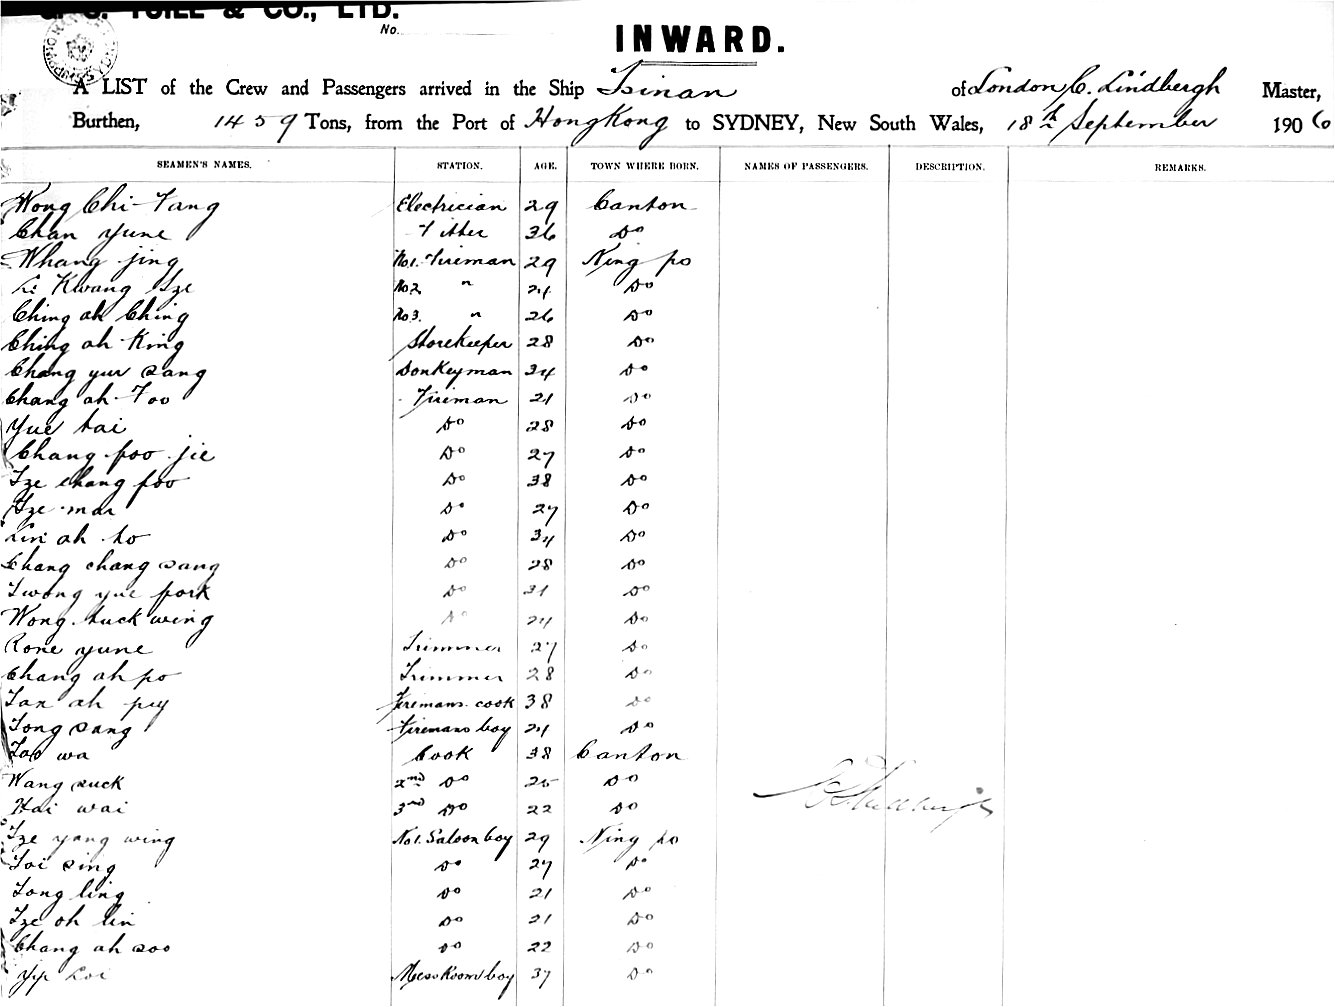 & CO., LTD.
No.
INWARD.
A LIST of the Crew and Passengers arrived in the Ship Tsinan of London, C. Lindbergh Master,
Burthen, 1459 Tons, from the Port of HongKong to SYDNEY, New South Wales, 18th September 1906
SEAMEN'S NAMES. STATION. AGE. TOWN WHERE BORN. NAMES OF PASSENGERS. DESCRIPTION. REMARKS.
Wong Chi-Fang Electrician 29 Canton
Chan yune Fitter 36 Do
Whang jing No1. Fireman 29 Ning po
Li Kwang Sze No2 " 24 Do
Ching ah Ching No3. " 26 Do
Ching ah King Storekeeper 28 Do
Chang yur sang Donkeyman 34 Do
Chang ah Foo Fireman 21 Do
Yue tai Do 28 Do
Chang foo jie Do 27 Do
Tze chang foo Do 38 Do
Tze mar Do 27 Do
Lin ah ho Do 34 Do
Chang chang sang Do 28 Do
Twong yue fork Do 31 Do
Wong tuck wing Do 24 Do
Rone yune Trimmer 27 Do
Chang ah po Trimmer 28 Do
Tan ah pey Firemans cook 38 Do
Tong sang Firemans boy 24 Do
Tao wa Cook 38 Canton
Wang suck 2nd Do 25 Do
Hai wai 3rd Do 22 Do
Tze yang wing No1. Saloon boy 29 Ning po
Toi sing Do 27 Do
Tong ling Do 21 Do
Tze ah lin Do 21 Do
Chang ah soo Do 22 Do
Yip Loi Mess Room boy 37 Do